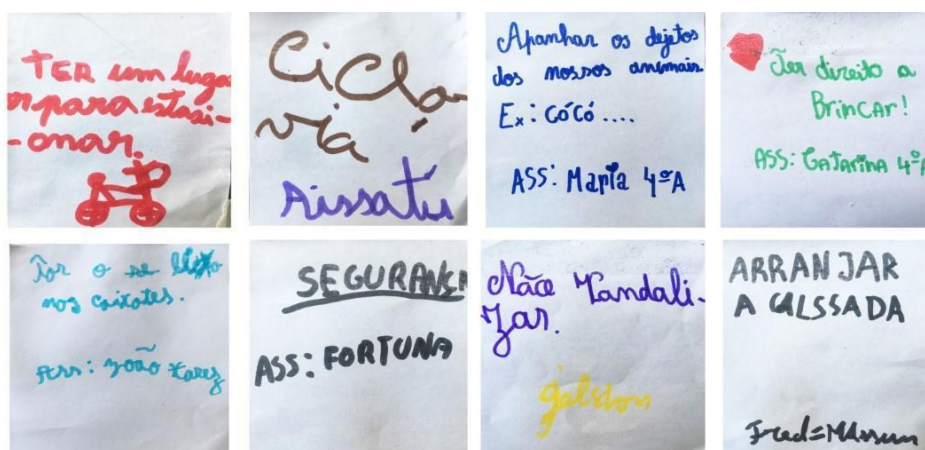 TER um luga
r para estasi-
-onar.
Ciclo-
via
Aissatú
Apanhar os dejetos
dos nossos animais.
Ex: CóCó....
ASS: Maria 4ºA
Ter direito a
BrinCAr!
ASS: CATArinA 4ºA
Pôr o se lixo
nos caixotes.
Ass: João
SEGURANSA
ASS: FORTUNA
Não Vandali-
zar.
ARRANJAR
A CALSSADA